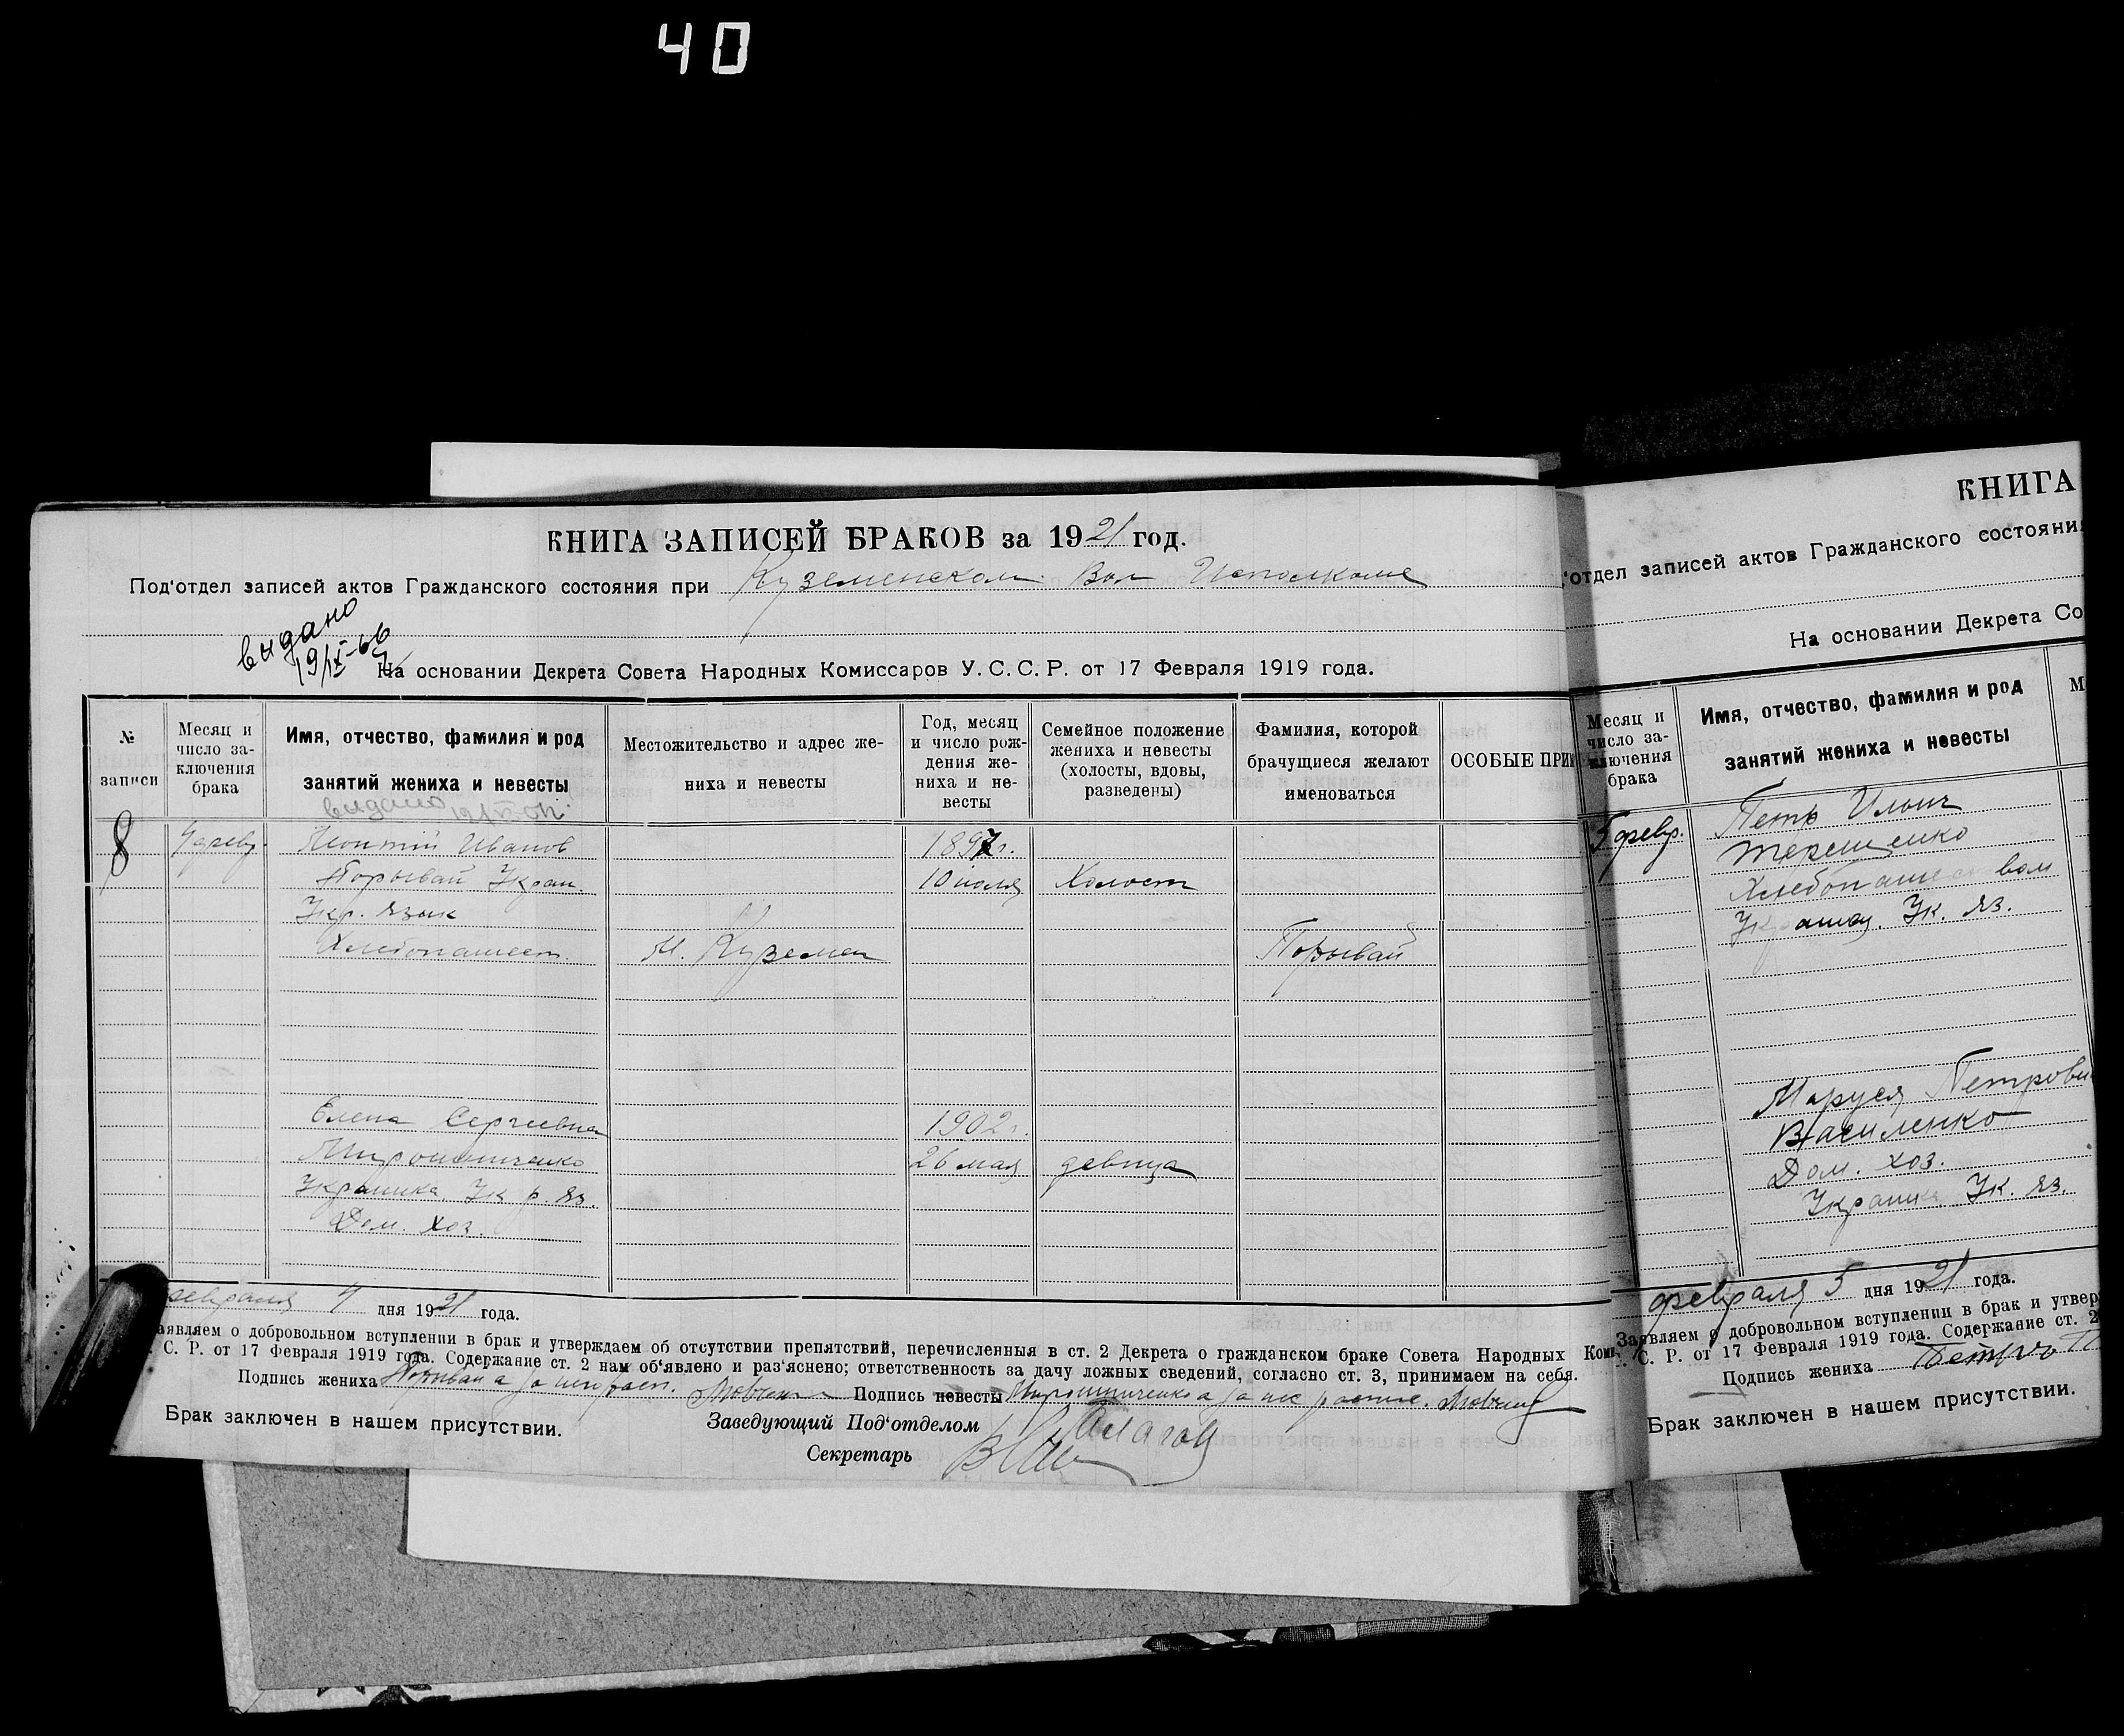 40
КНИГА ЗАПИСЕЙ БРАКОВ за 1921 год.
Под'отдел записей актов Гражданского состояния при Куземенском Вол Исполкоме
выдано
19/IX-66
На основании Декрета Совета Народных Комиссаров У. С. С. Р. от 17 Февраля 1919 года.
№ записи
Месяц и число за-ключения брака
Имя, отчество, фамилия и род занятий жениха и невесты
Местожительство и адрес же-ниха и невесты
Год, месяц и число рож-дения же-ниха и не-весты
Семейное положение жениха и невесты (холосты, вдовы, разведены)
Фамилия, которой брачущиеся желают именоваться
ОСОБЫЕ ПРИМ
выдано
8 4 февр. Леонтий Иванов 1897 г.
Порывай Украи. 10 июля Холост
Укр. язык
Хлебопашест. М. Куземен Порывай
Елена Сергеевна 1902 г.
Мирошниченко 26 мая девица
Украинка. Укр. яз.
Дом. хоз.
февраля 4 дня 1921 года.
аявляем о добровольном вступлении в брак и утверждаем об отсутствии препятствий, перечисленныя в ст. 2 Декрета о гражданском браке Совета Народных Коми
. С. Р. от 17 Февраля 1919 года. Содержание ст. 2 нам об'явлено и раз'яснено; ответственность за дачу ложных сведений, согласно ст. 3, принимаем на себя.
Подпись жениха Порывай а за негр Подпись невесты Мирошниченко а за нее
Брак заключен в нашем присутствии.
Заведующий Под'отделом
Секретарь
КНИГА
'отдел записей актов Гражданского состояния
На основании Декрета Со
Месяц и число за-ключения брака
Имя, отчество, фамилия и род занятий жениха и невесты
М
5 февр. Петр Ильич
Терещенко
Хлебопашеством
Украинец. Ук. яз.
Маруся Петровн
Василенко
Дом. хоз.
Украинка Ук. яз.
февраля 5 дня 1921 года.
Заявляем о добровольном вступлении в брак и утвер
. С. Р. от 17 Февраля 1919 года. Содержание ст. 2
Подпись жениха Петро
Брак заключен в нашем присутствии.